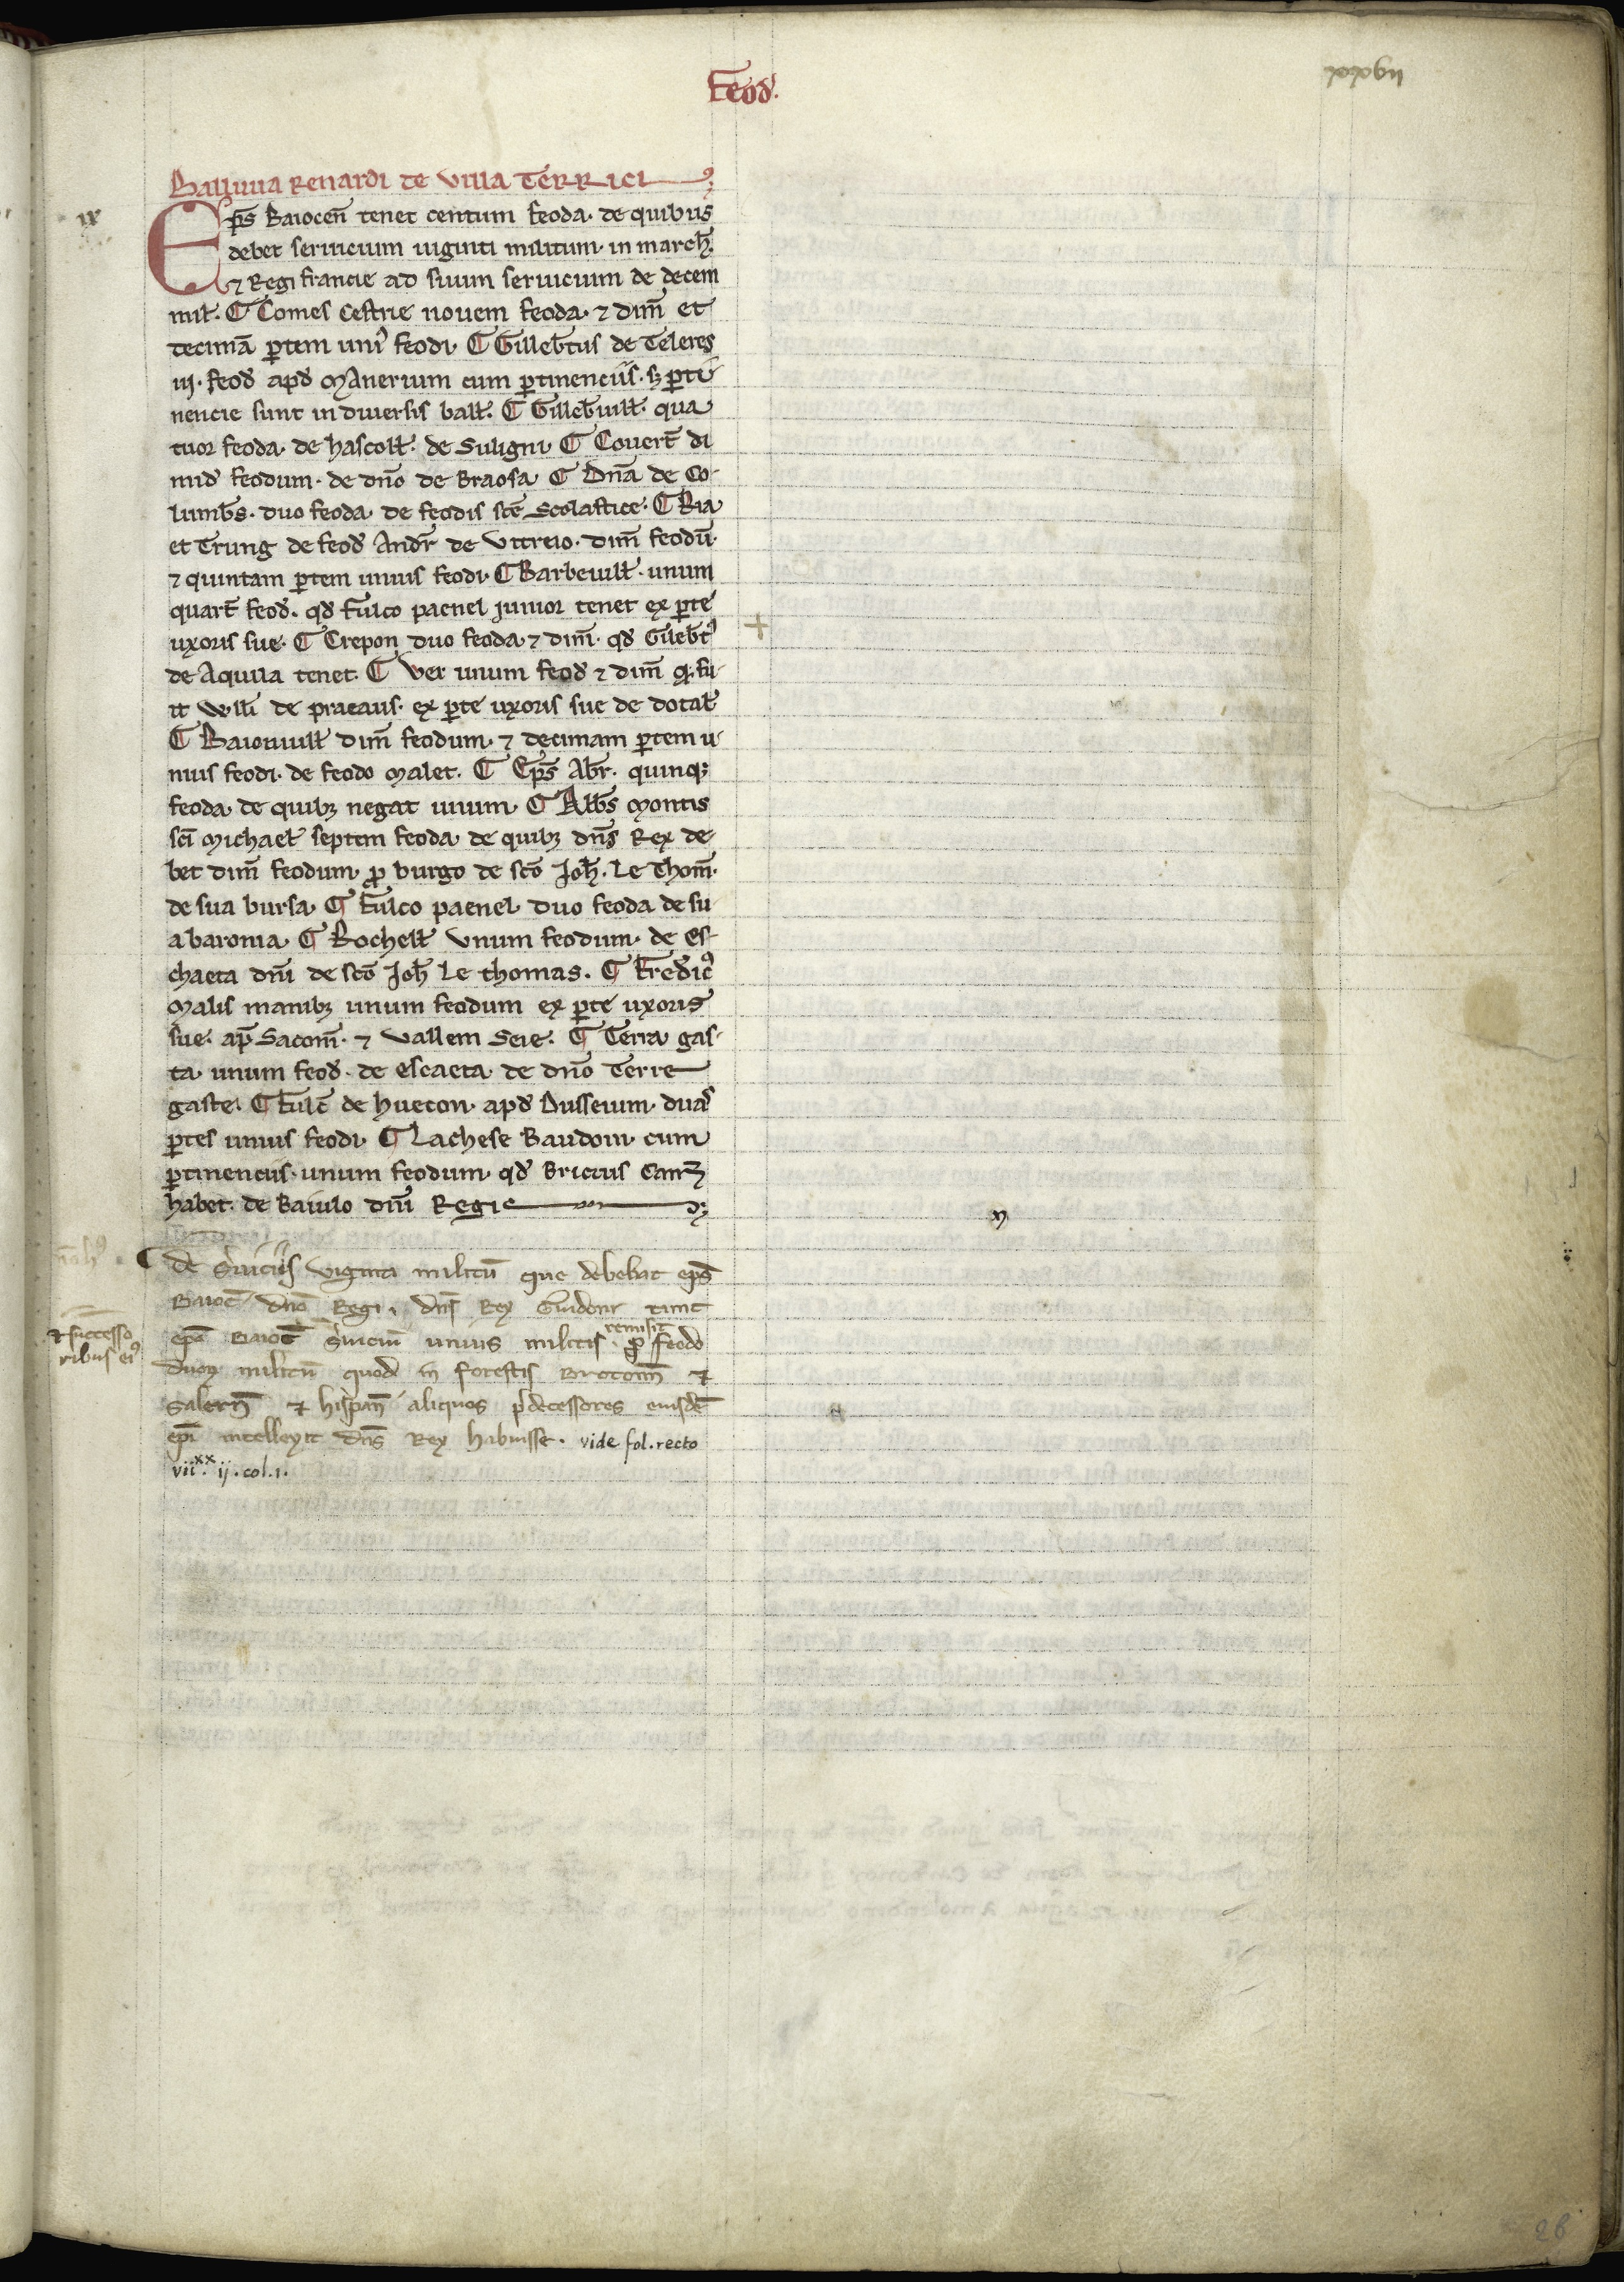 Feod'.
xxxvii
Balliuia Renardi de Villa Terrici
ix
Ep̄s Baiocen̄ tenet centum feoda. de quibus
debet seruicium uiginti militum. in march'.
⁊ Regi francie ad suum seruicium de decem
mil'. ¶ Comes Cestrie nouem feoda. ⁊ dim̄ et
decimā ꝑtem uniꝰ feodi. ¶ Gilleb'tus de Teleres
iij. feod' apd' Manerium cum ꝑtinenciis. sꝫ ꝑti
nencie sunt in diuersis ball'. ¶ Gilleb'uill'. qua
tuor feoda. de hascoll'. de Suligni. ¶ Couert̄ di
mid' feodum. de dn̄o de Braosa. ¶ Dn̄a de Co-
lumb̄s. duo feoda. de feodis sc̄e Scolastice. ¶ Ria
et Trung de feod' Andr̄ de Vitreio. dim̄ feodū.
⁊ quintam ꝑtem unius feodi. ¶ Barbeuill'. unum
quart̄ feod'. qd' Fulco paenel junior tenet ex ꝑte
uxoris sue. ¶ Crepon duo feoda. ⁊ dim̄. qd' Gileb'tꝰ
de Aquila tenet. ¶ Ver unum feod' ⁊ dim̄ q' fu-
it Will̄i de praeaus. ex ꝑte uxoris sue de dotal'
¶ Baionuill' dim̄ feodum. ⁊ decimam ꝑtem u-
nius feodi. de feodo Malet. ¶ Ep̄s Abr̄. quinqꝫ
feoda. de quibꝫ negat unum. ¶ Abb̄s Montis
sc̄i Michael' septem feoda. de quibꝫ dn̄s Rex de-
bet dim̄ feodum. ꝓ burgo de sc̄o Joh'. le Thom̄.
de sua bursa. ¶ Fulco paenel duo feoda de su-
a baronia. ¶ Rochell' Vnum feodum. de es-
chaeta dn̄i de sc̄o Joh' le thomas. ¶ Fredicꝰ
Malis manibꝫ unum feodum ex ꝑte uxoris
sue. ap̄ Sacom̄. ⁊ Vallem Seie. ¶ Terra gas-
ta. unum feod'. de escaeta de dn̄o Terre
gaste. ¶ Fulc̄ de huecon. apd' Dusseium. duas
ꝑtes unius feodi. ¶ Lachese Baudoin. cum
ꝑtinenciis. unum feodum. qd' Briccius Cam̄
habet. de Baiulo dn̄i Regis
¶ de s'uiciis viginti militū que debebat ep̄s
Baioc̄ dn̄o Regi. dn̄s Rex Guidoni tunc
ep̄o Baioc̄ s'uiciū unius militis remisit ꝓ feodo
⁊ successo
ribus eiꝰ
duoꝝ militū quod in forestis Brotom̄ ⁊
Salern̄ ⁊ hispan̄ aliquos p'decessores eiusdē
ep̄i intellexit dn̄s Rex habuisse. vide fol. recto
vii.xx ij. col. 1.
28